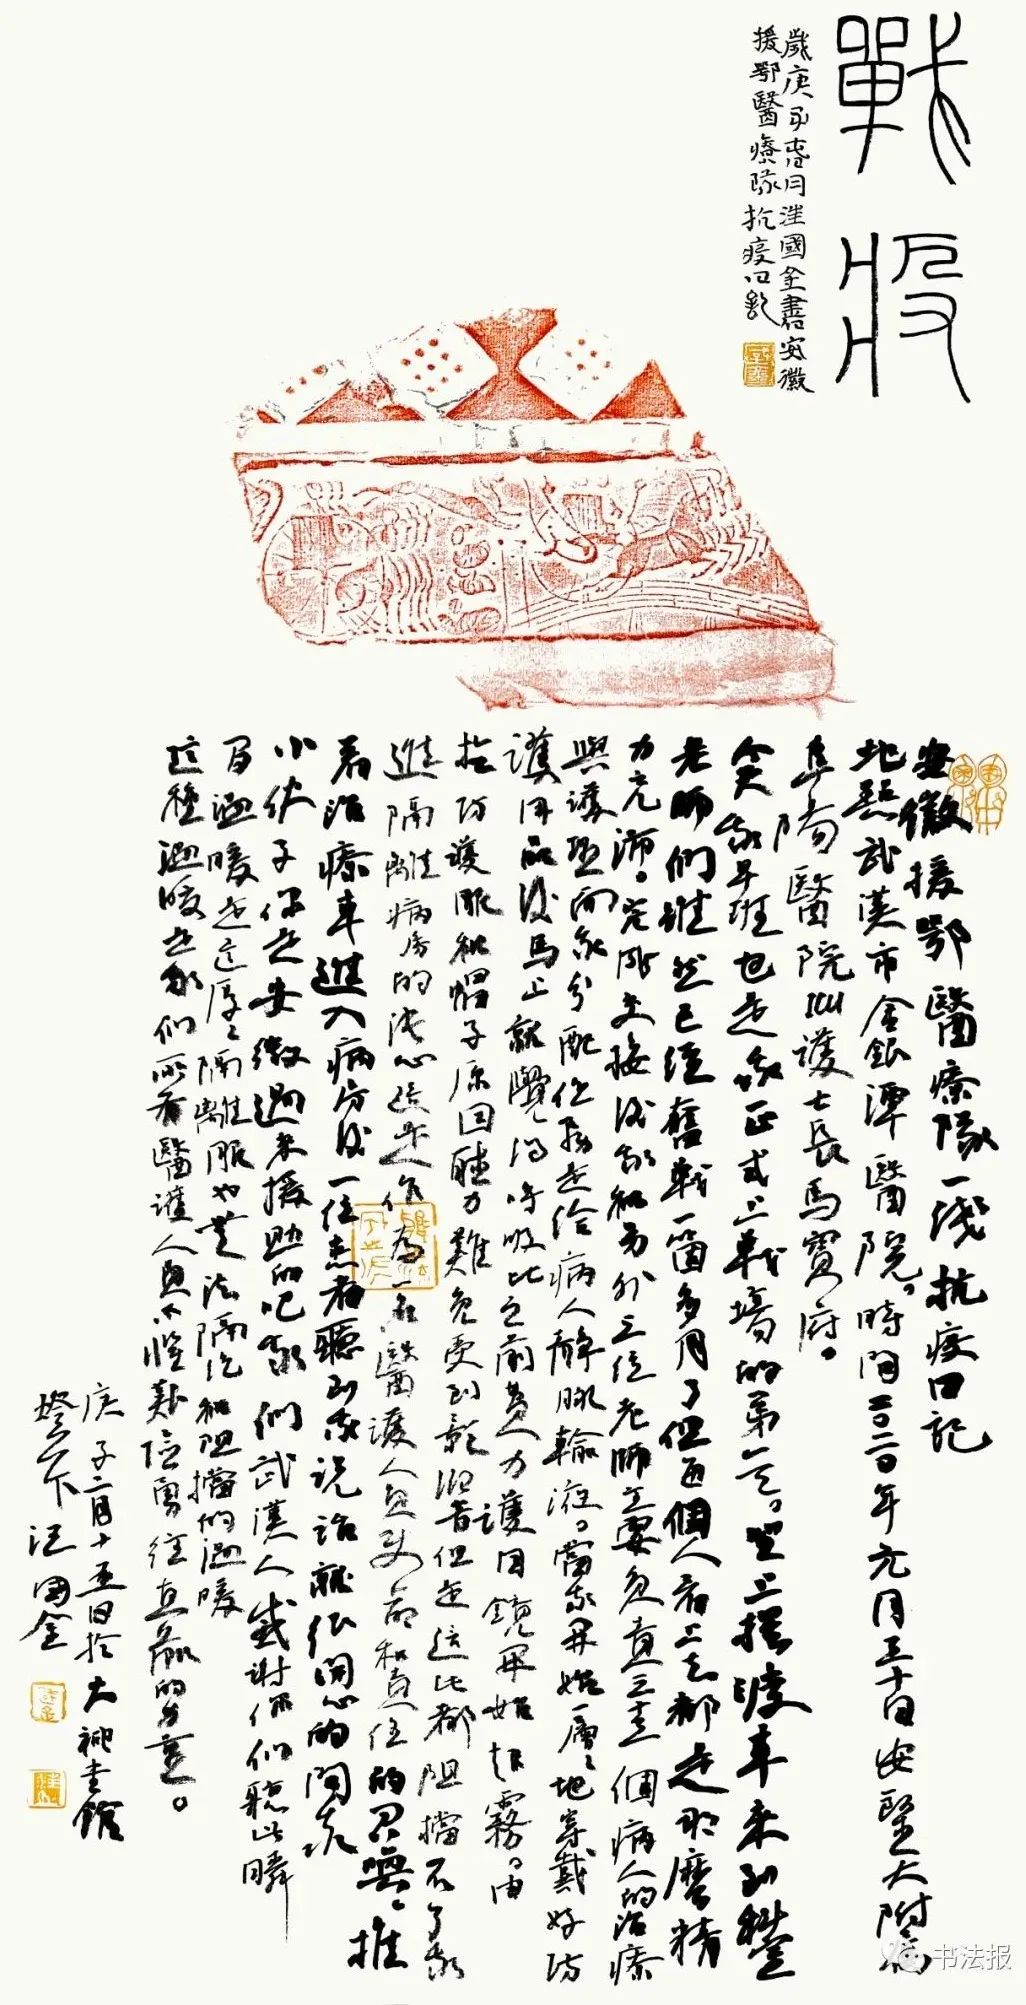 戰役
歲庚子春月汪國金書安徽
援鄂醫療隊抗疫日記
安徽援鄂醫療隊一线抗疫日記
地點武漢市金銀潭醫院。時間二〇二〇年元月三十日安医大附属
阜陽醫院icu護士長馬寶府。
今天我早班也是我正式上戰場的第一天。登上接送車来到科室
老師們雖然已經奮戰一箇多月了但每個人看上去都是那麼精
力充沛。完成交接後我和另外三位老師主要負責三十個病人的治療
與護理而我分配任務是給病人靜脈輸液。當我開始一層層地穿戴好防
護用品後馬上就覺得呼吸比之前費力護目鏡開始起霧,由
於防護服和帽子原因聽力難免受到影响音但是這比都阻擋不了我
進隔離病房的決心這是作為一名醫護人員使命和責任的召喚,推
着治療車進入病房後一位患者聽到我说話離很開心的問我
小伙子你是安徽過来援助的吧我們武漢人感謝你們聽此瞬
間温暖是這厚厚隔離服也無法隔訖和阻擋的温暖
這種温暖是我們所有醫護人員不懼艱險勇往直前的力量。
庚子二月十五日於大禪圭館
燈下汪國金
书法报